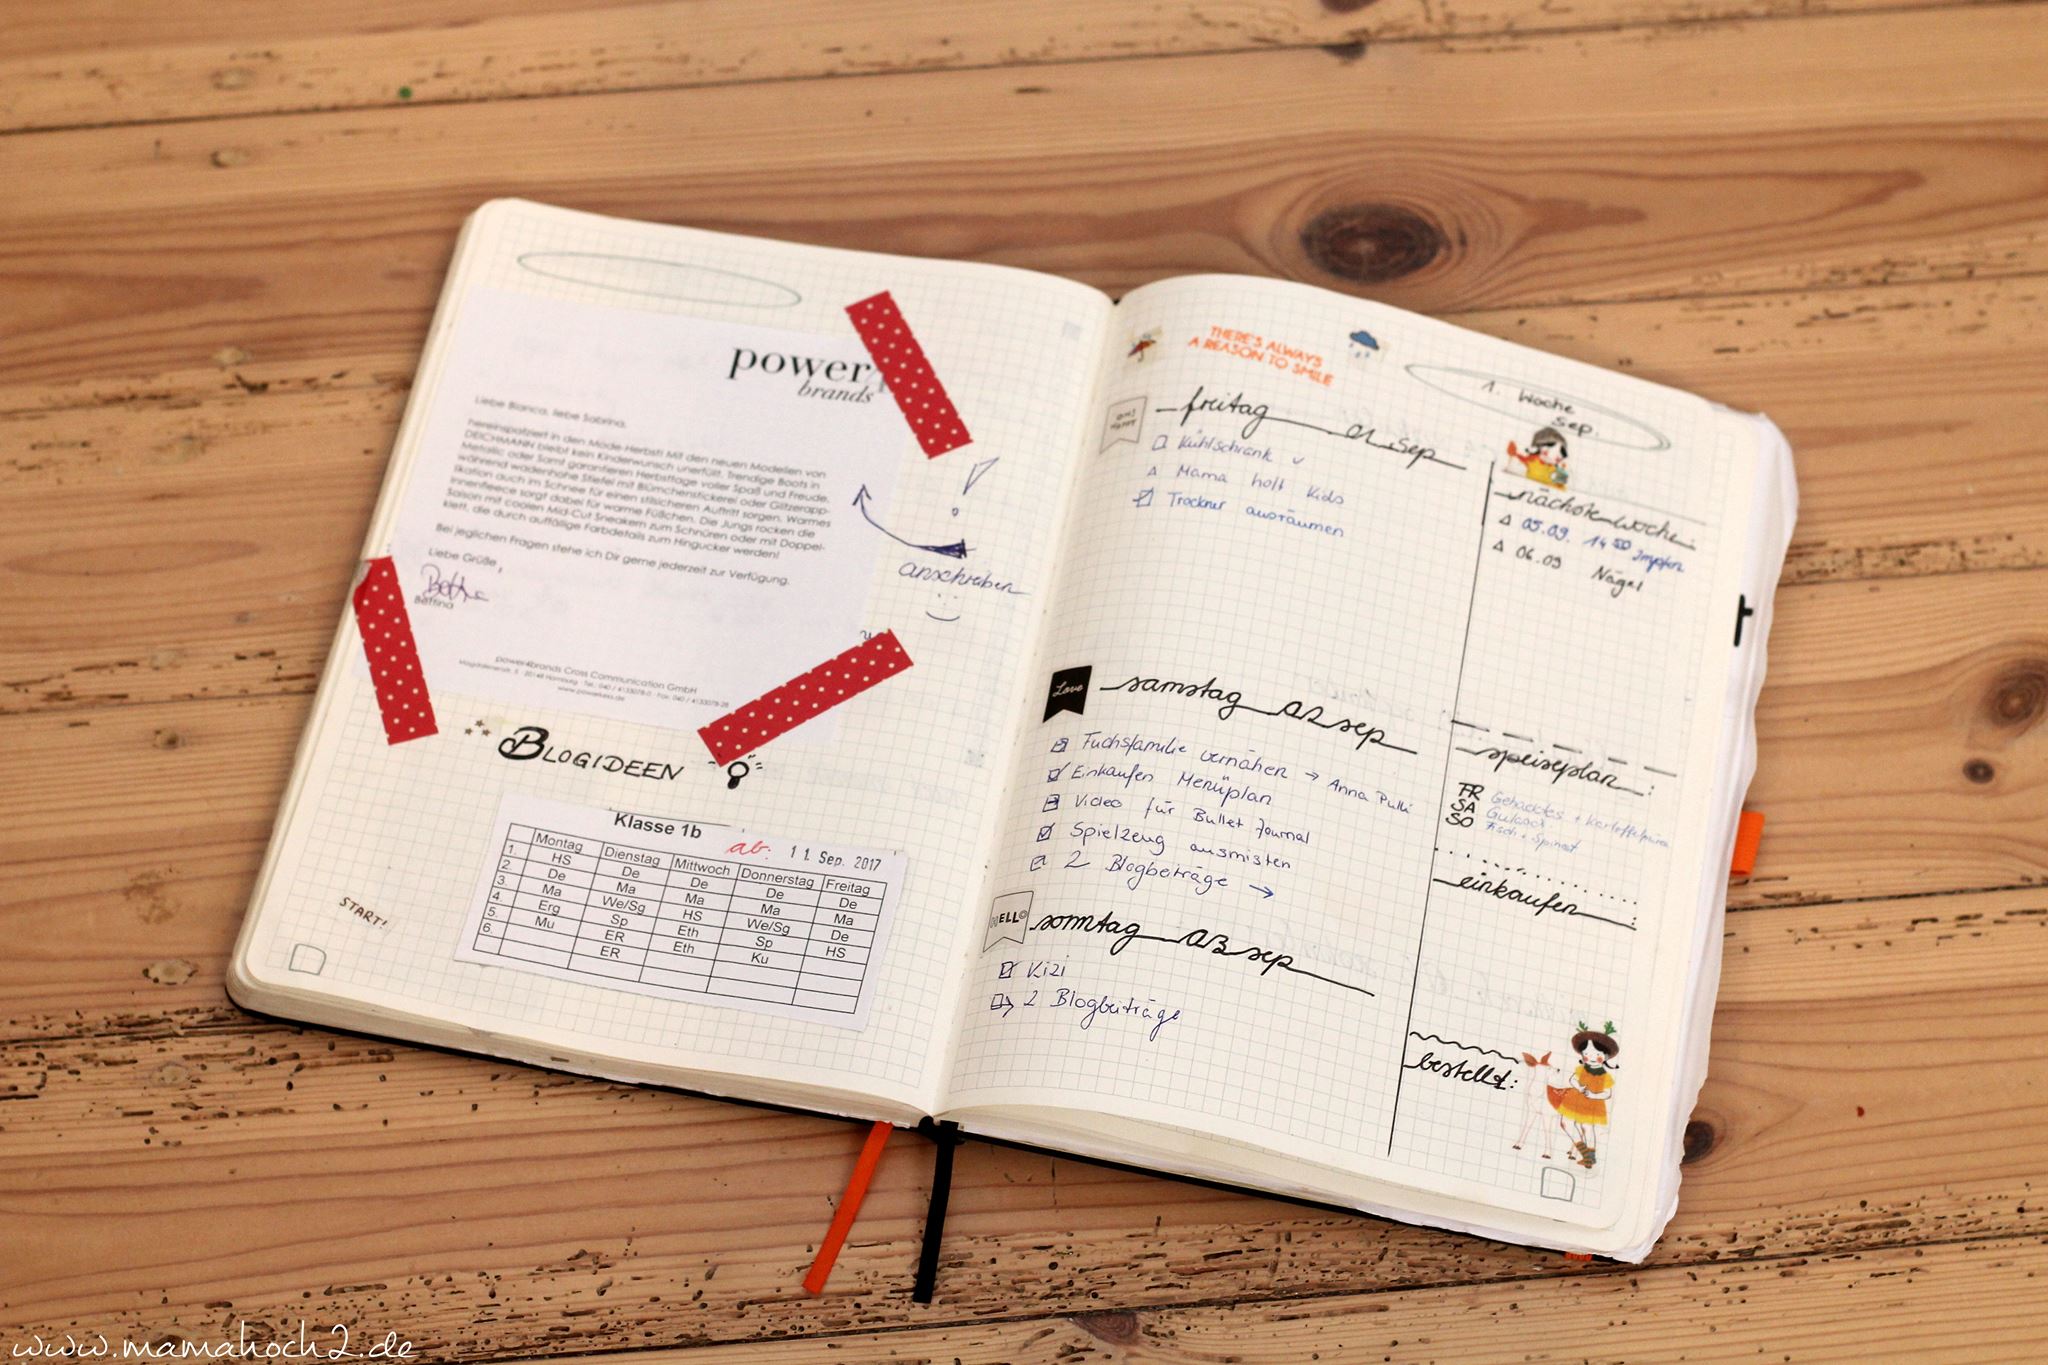 power
brands
Liebe Bianca, liebe Sabrina,
hereinspatziert in den Mode-Herbst! Mit den neuen Modellen von
DEICHMANN bleibt kein Kinderwunsch unerfüllt. Trendige Boots in
Metallic oder Samt garantieren Herbsttage voller Spaß und Freude,
während wadenhohe Stiefel mit Blümchenstickerei oder Glitzerapp-
likation auch im Schnee für einen stilsicheren Auftritt sorgen. Warmes
Innenfleece sorgt dabei für warme Füßchen. Die Jungs rocken die
Saison mit coolen Mid-Cut Sneakern zum Schnüren oder mit Doppel-
klett, die durch auffällige Farbdetails zum Hingucker werden!
Bei jeglichen Fragen stehe ich Dir gerne jederzeit zur Verfügung.
Liebe Grüße,
Bettina
power4brands Cross Communication GmbH
!
anschreiben
BLOGIDEEN
Klasse 1b
ab: 11. Sep. 2017
Montag Dienstag Mittwoch Donnerstag Freitag
1. HS De De De De
2. De Ma Ma Ma Ma
3. Ma We/Sg HS We/Sg De
4. Erg Sp Eth Sp HS
5. Mu ER Eth Ku
6. ER
START!
THERE'S ALWAYS
A REASON TO SMILE
1. Woche
Sep.
freitag 01.sep
Kühlschrank
Mama holt Kids
Trockner ausräumen
Love
samstag 02 sep
Fuchsfamilie vernähen → Anna Pulli
Einkaufen Menüplan
Video für Bullet Journal
Spielzeug ausmisten
2 Blogbeiträge →
sonntag 03 sep
Kizi
2 Blogbeiträge
nächste woche:
05.09. 14 50 Impfen
06.09 Nägel
speiseplan:
FR Gehacktes + Kartoffelpüree
SA Gulasch
SO Fisch + Spinat
einkaufen:
bestellt:
www.mamahoch2.de